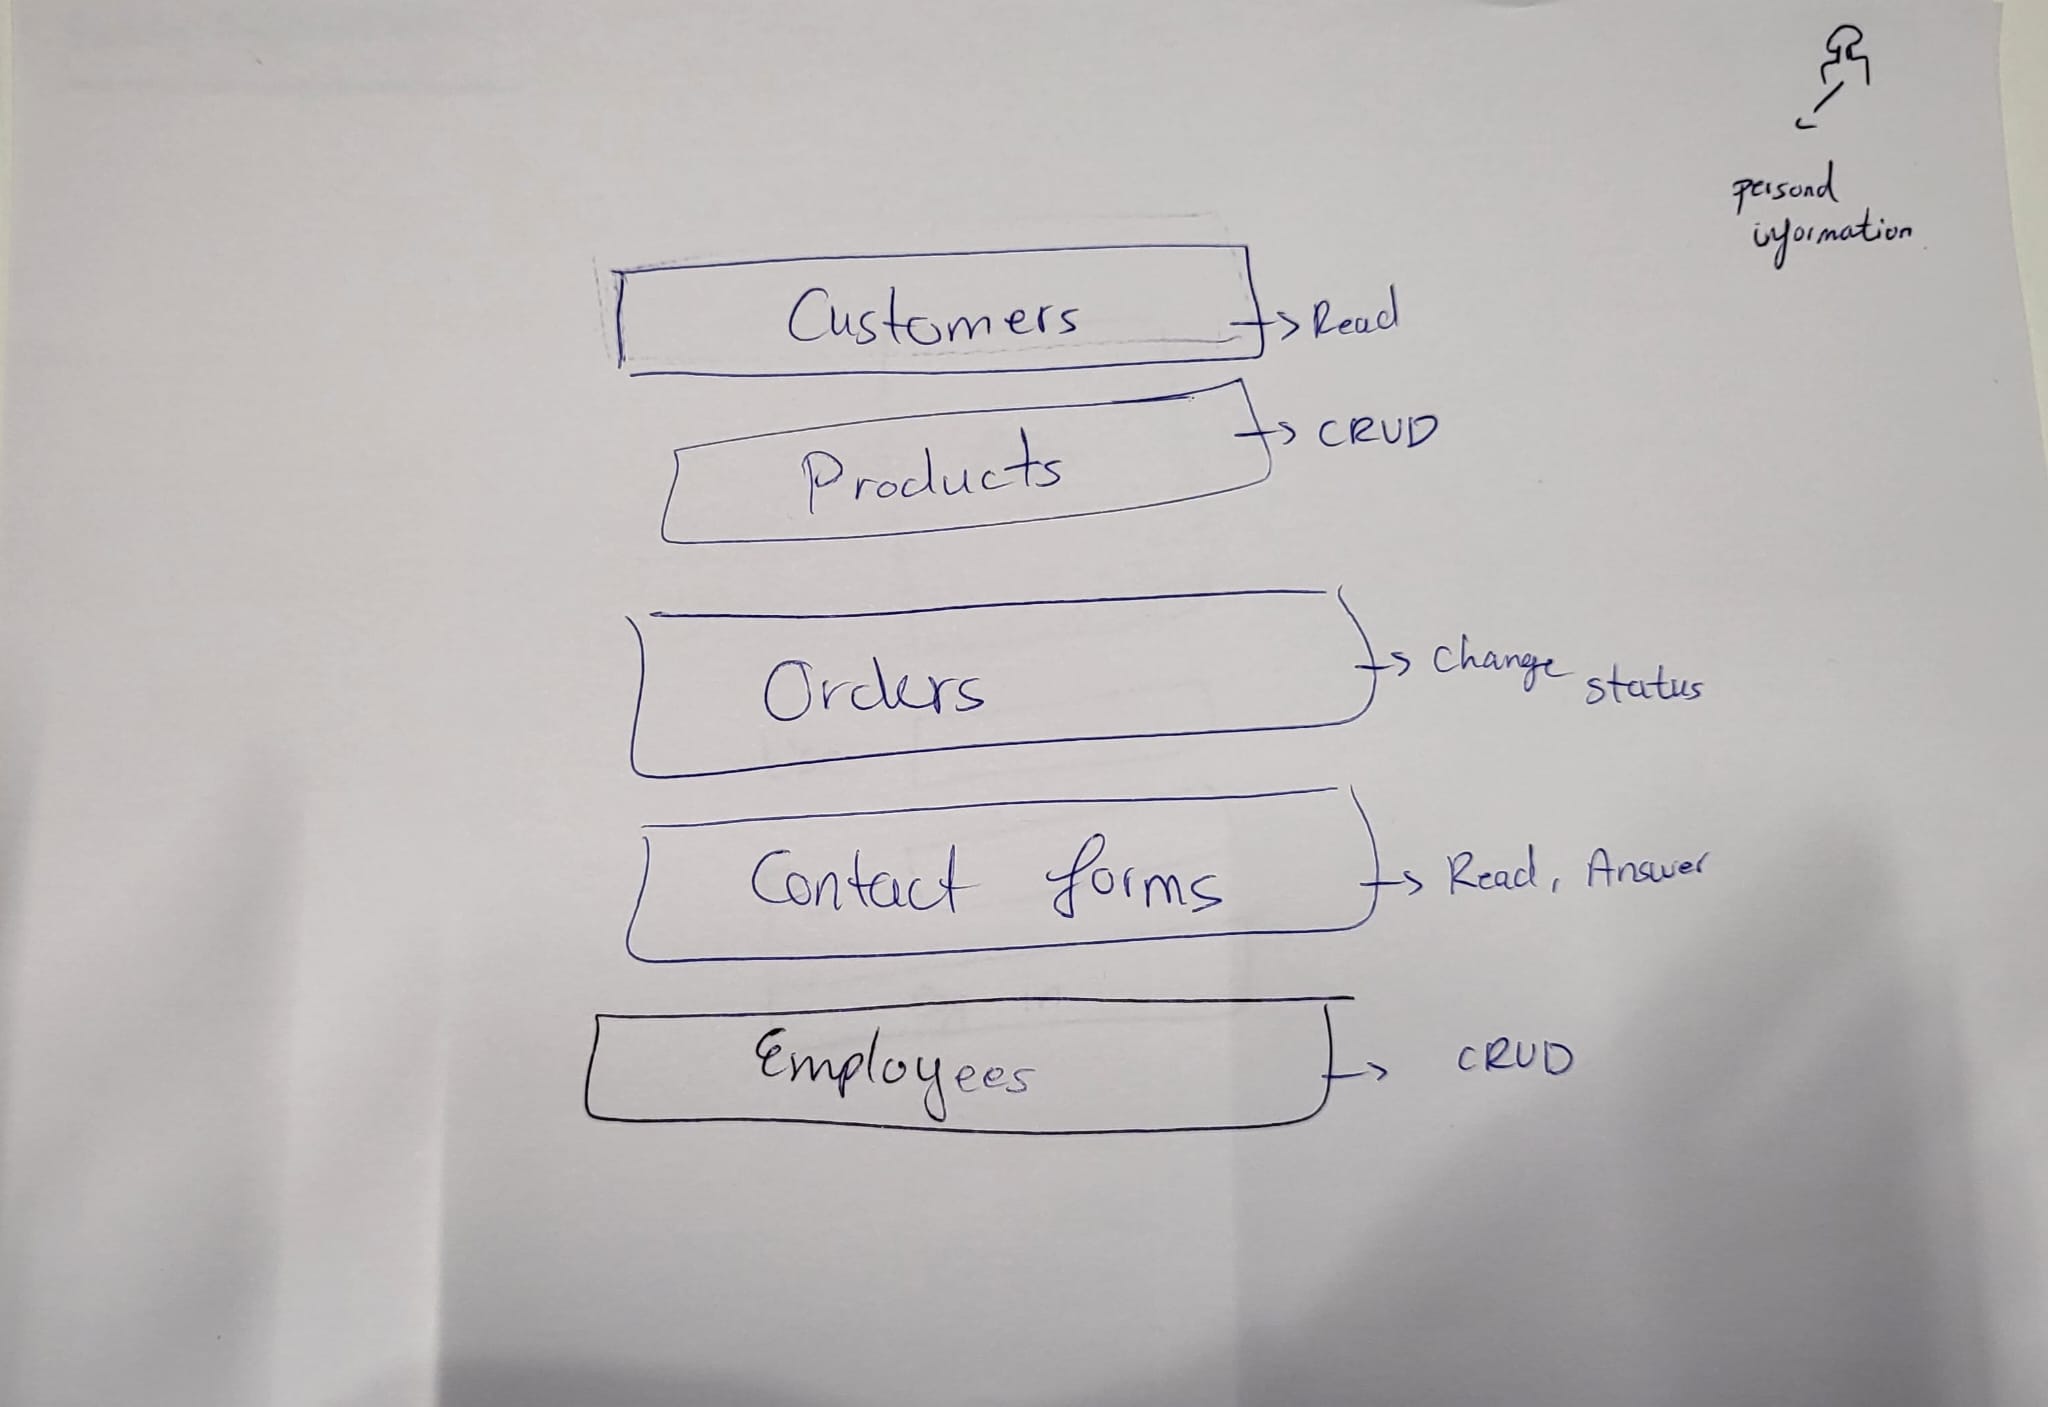 personal
information
Customers → Read
Products → CRUD
Orders → Change status
Contact forms → Read, Answer
Employees → CRUD